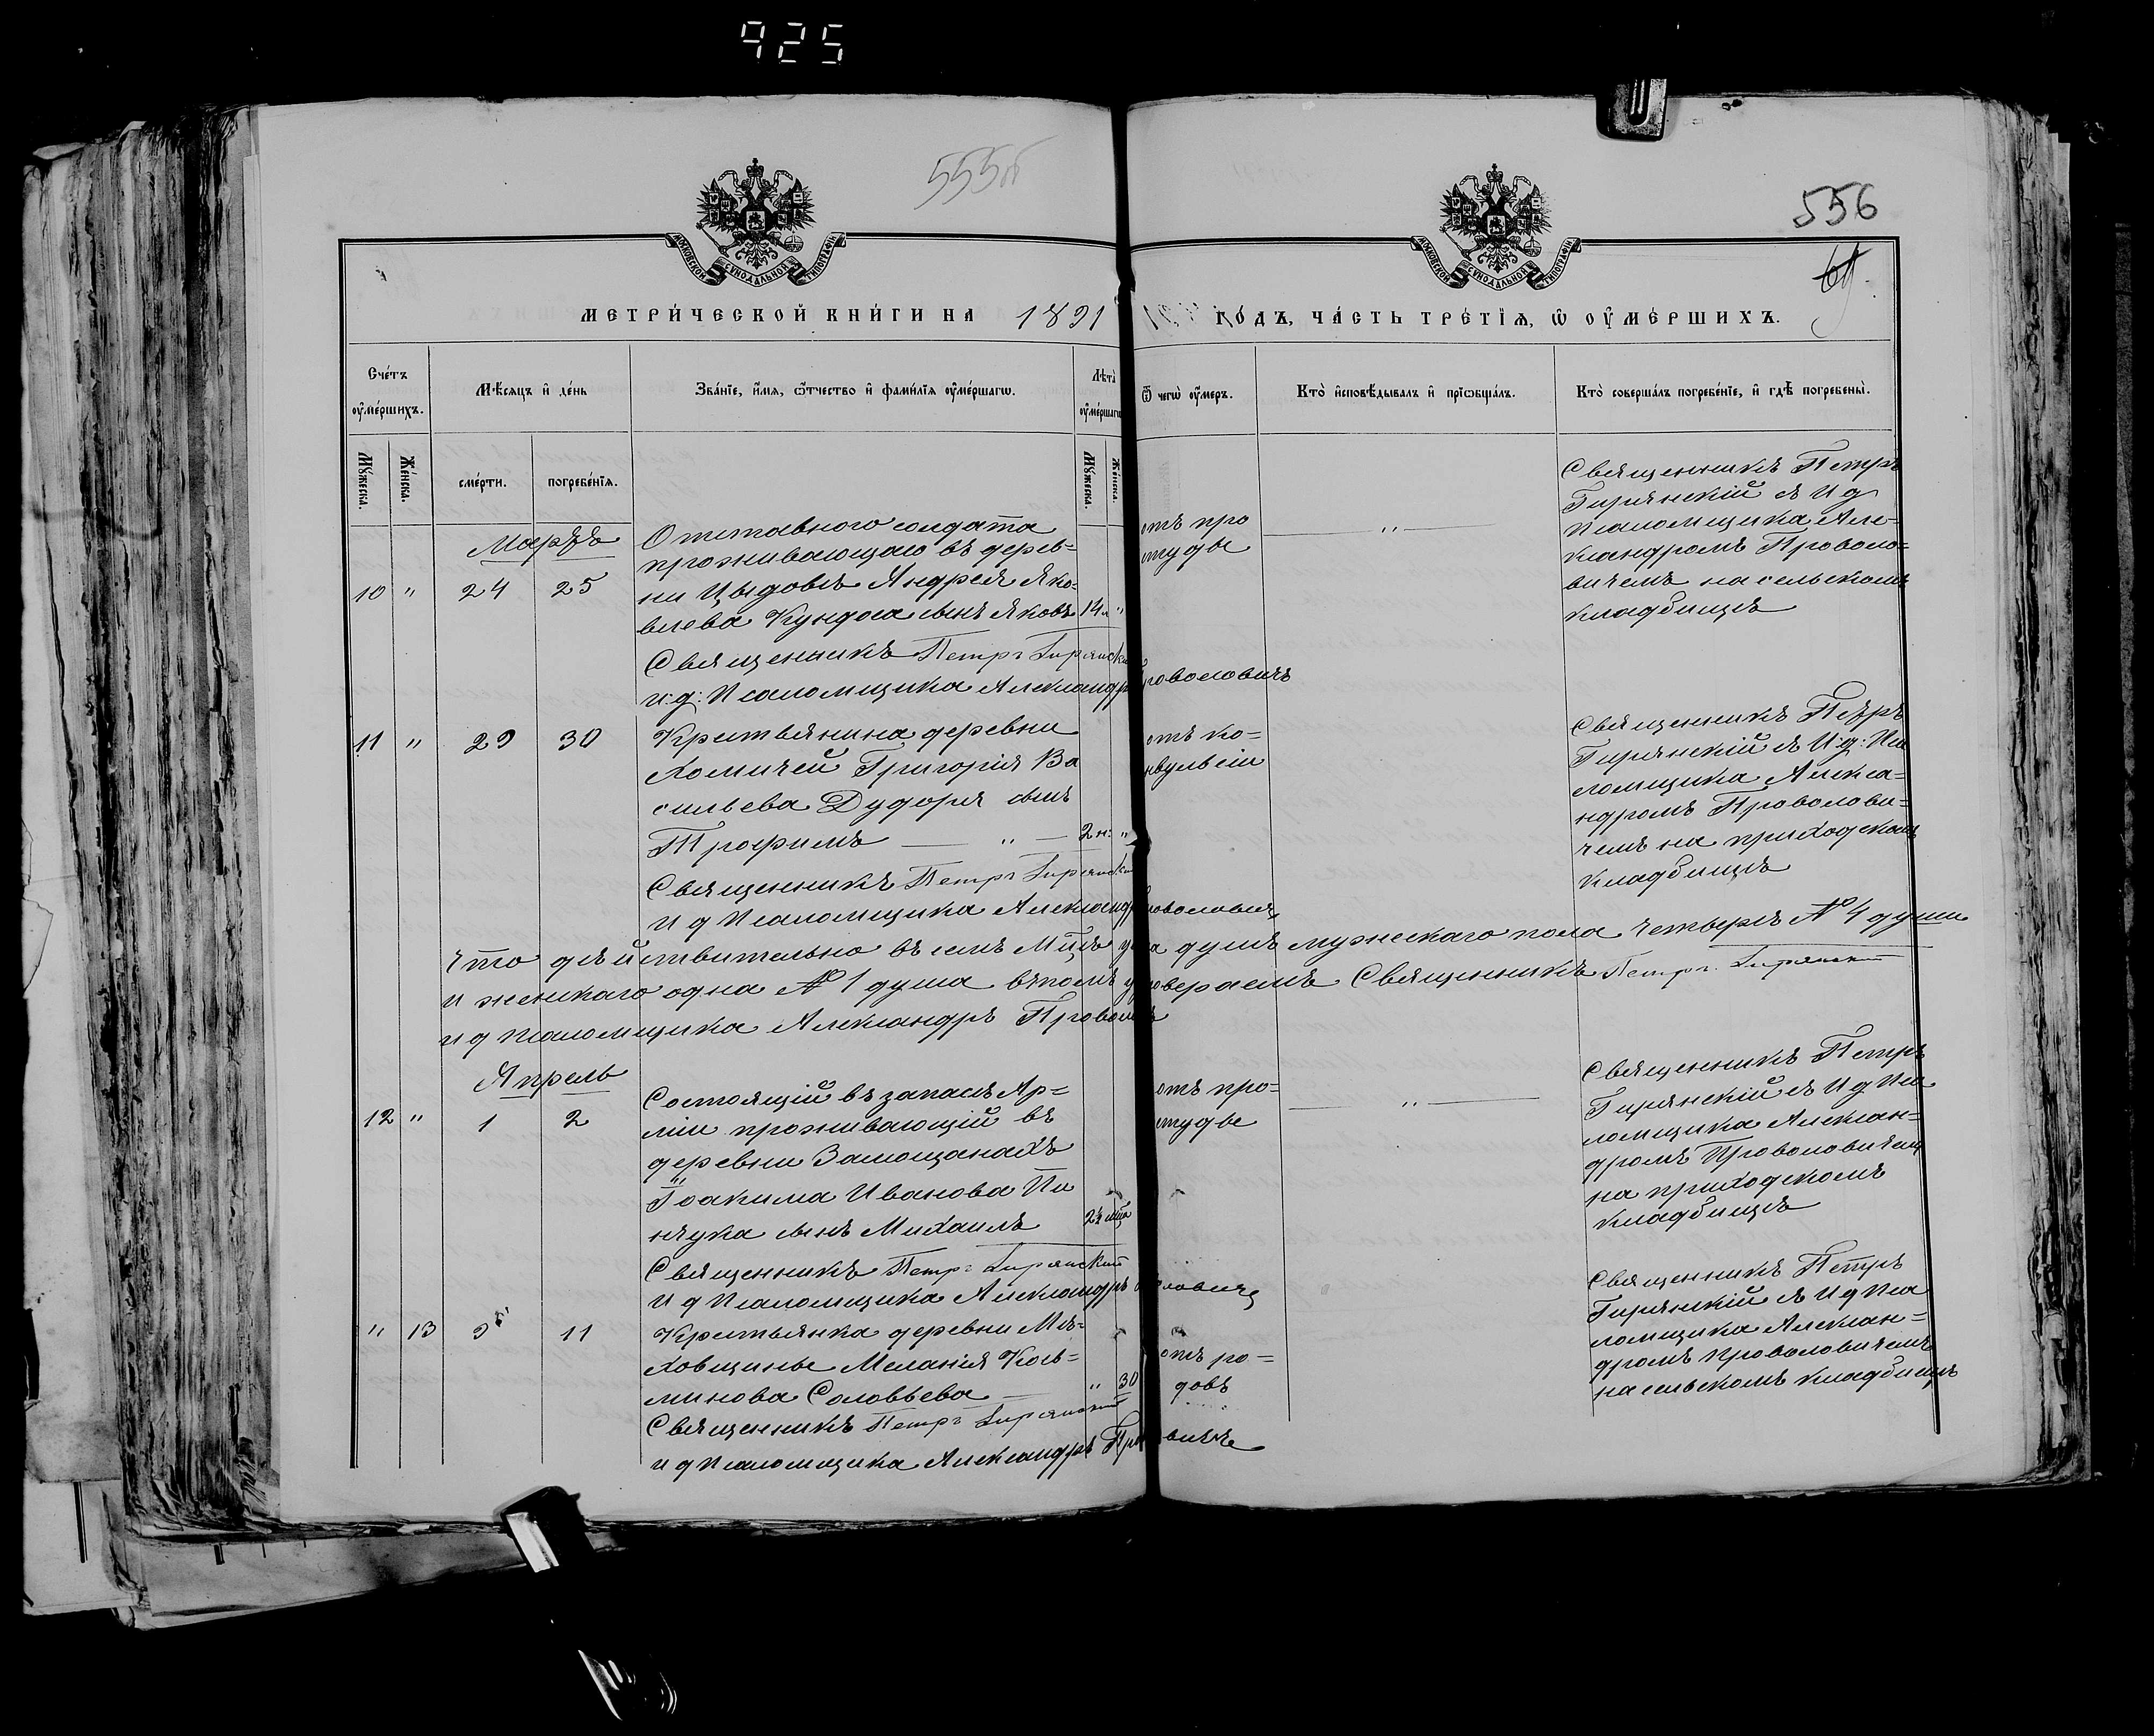 925
555об
556
МОСКОВСКОЙ СѴНОДАЛЬНОЙ ТИПОГРАФІИ
МОСКОВСКОЙ СѴНОДАЛЬНОЙ ТИПОГРАФІИ
МЕТРИ́ЧЕСКОЙ КНИ́ГИ НА 1891 ГО́ДЪ, ЧА́СТЬ ТРЕ́ТІѦ, Ѽ ОУ҆МЕ́РШИХЪ.
Сче́тъ оу҆ме́ршихъ.
Мѣ́сяцъ и҆ де́нь
Зва́ніе, и҆́мѧ, ѻ҆́тчество и҆ фами́лїѧ оу҆ме́ршагѡ.
Лѣ́та оу҆ме́ршагѡ
Ѿ чегѡ̀ оу҆́меръ.
Кто̀ и҆сповѣ́дывалъ и҆ прїѡбща́лъ.
Кто̀ соверша́лъ погребе́нїе, и҆ гдѣ̀ погребены̀.
Мꙋ́жеска.
Же́нска.
сме́рти.
погребе́нїѧ.
Мꙋ́жеска.
Же́нска.
Мартъ
10 " 24 25
Отставного солдата
проживающаго въ дерев=
ни Цыдовъ Андрея Яко=
влева Кундоса сынъ Яковъ 14 л "
отъ про
студы
"
Священникъ Петръ
Гирянскій съ И д
псаломщика Але=
ксандромъ Проволо=
вичемъ на сельскомъ
кладбищѣ
Священникъ Петръ Гирянскій
и:д: Псаломщика Александръ Проволовичъ
11 " 29 30
Крестьянина деревни
Хомичей Григорія Ва
сильева Дудоря сынъ
Трофимъ " 2 н: "
отъ ко=
нвульсіи
Священникъ Петръ
Гирянскій съ И:д: Пса
ломщика Алекса=
ндромъ Проволови=
чемъ на приходскомъ
кладбищѣ
Священникъ Петръ Гирянскій
И д Псаломщика Александръ Проволовичъ
Что дѣйствительно въ семъ Мцѣ душъ мужескаго пола четыре № 4 души
и женскаго одна № 1 душа въ томъ удостоверяемъ Священникъ Петръ Гирянскій
и д псаломщика Александръ
Апрель
12 " 1 2
Состоящій въ запасѣ Ар=
міи проживающій въ
деревни Замощанахъ
Іоакима Иванова Пи
нчука сынъ Михаилъ 2½ мца
отъ про=
студы
"
Священникъ Петръ
Гирянскій съ И д Пса
ломщика Алексан=
дромъ Проволовичемъ
на приходскомъ
кладбищѣ
Священникъ Петръ Гирянскій
И д Псаломщика Александръ Проволовичъ
" 13 9 11
Крестьянка деревни Мѣ=
ховщины Меланія Козь=
минова Соловьева " 30
отъ ро=
довъ
Священникъ Петръ
Гирянскій съ И д Пса
ломщика Алексан=
дромъ Проволовичемъ
на сельскомъ кладбищѣ
Священникъ Петръ Гирянскій
и д Псаломщика Александръ